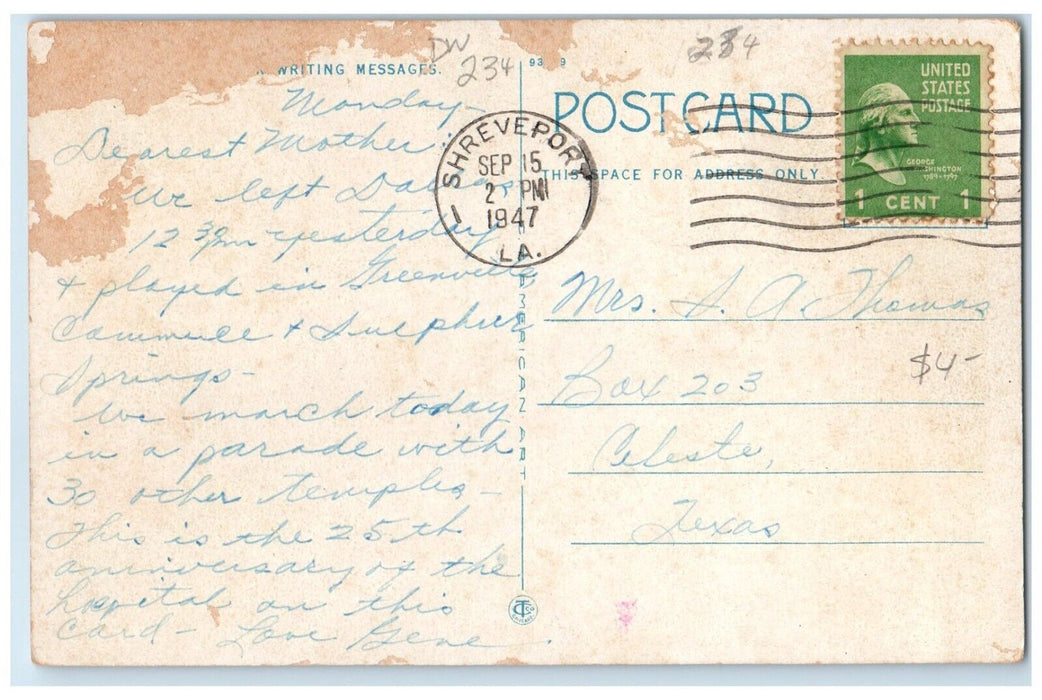 WRITING MESSAGES.
DW
234
Monday-
Dearest Mother:
We left Dallas
12 30 pm yesterday
+ played in Greenville
Commerce + Sulpher
Springs-
We march today
in a parade with
30 other temples-
This is the 25th
anniversary of the
hospital on this
card- Love Gene.
93 9
234
POST CARD
THIS SPACE FOR ADDRESS ONLY.
SHREVEPORT
SEP 15
2 PM
1947
LA.
1
UNITED
STATES
POSTAGE
GEORGE
WASHINGTON
1789-1797
1 CENT 1
AMERICAN ART
Mrs. S. A. Thomas
$4-
Box 203
Celeste,
Texas